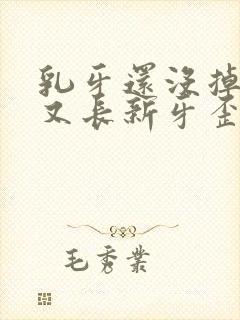 乳牙還沒掉
又長新牙歪
毛秀業